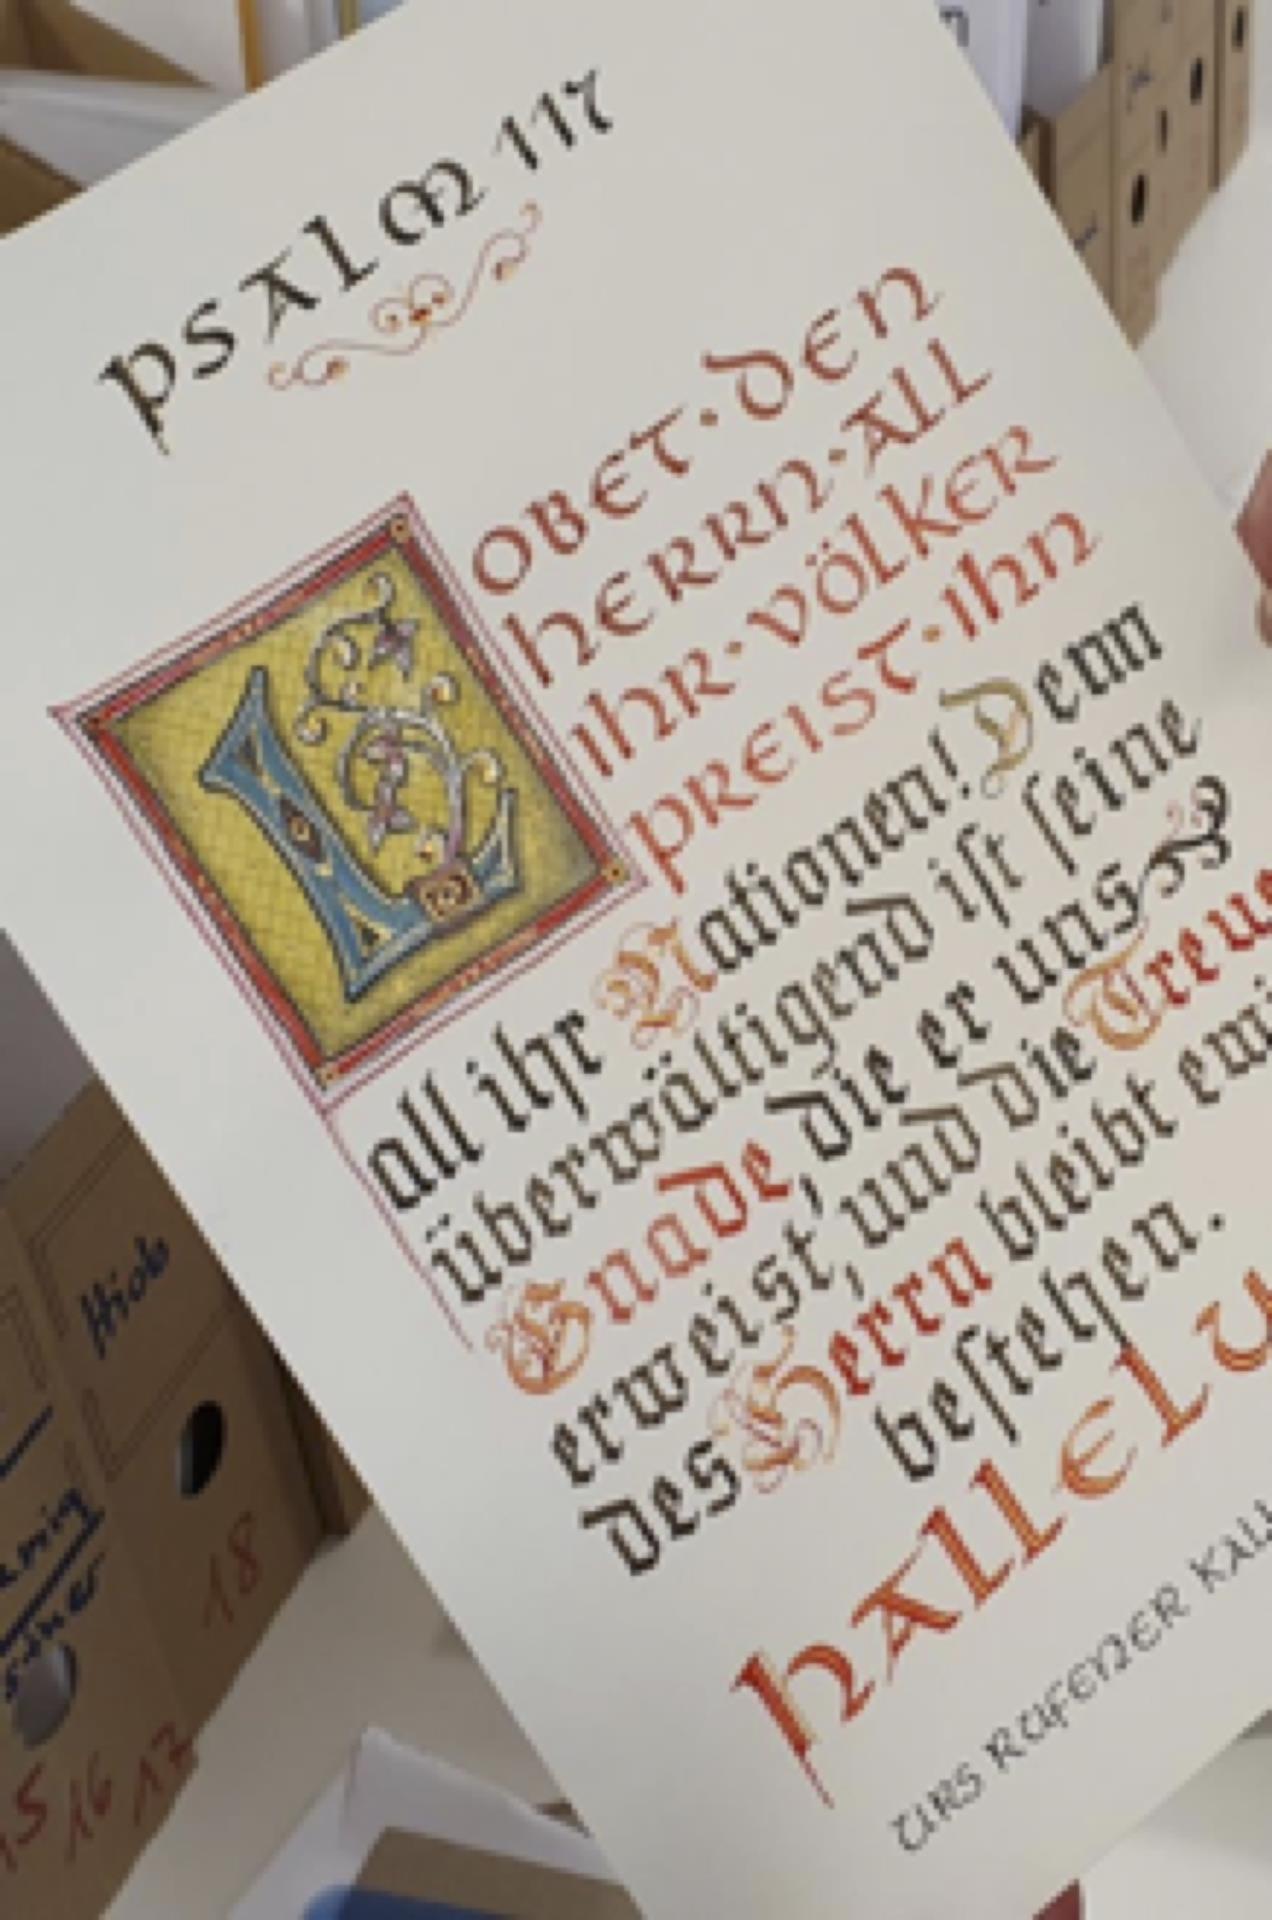 PSALM 117
LOBET · DEN
HERRN · ALL
IHR · VÖLKER
PREIST · IHN
all ihr Nationen! Denn
überwältigend iſt ſeine
Gnade, die er uns
erweist, und die Treue
des Herrn bleibt ewi
beſtehen.
HALLELU
URS RUFENER KALL
Hiob
18
15 16 17